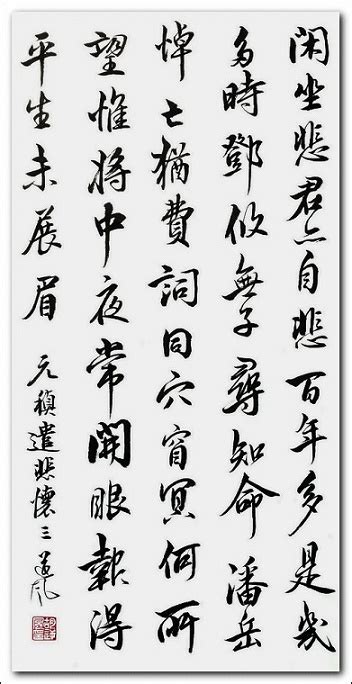 閑坐悲君亦自悲百年多是幾
多時鄧攸無子尋知命潘岳
悼亡猶費詞同穴窅冥何所
望惟將中夜常開眼報得
平生未展眉 元稹遣悲懷三 道風